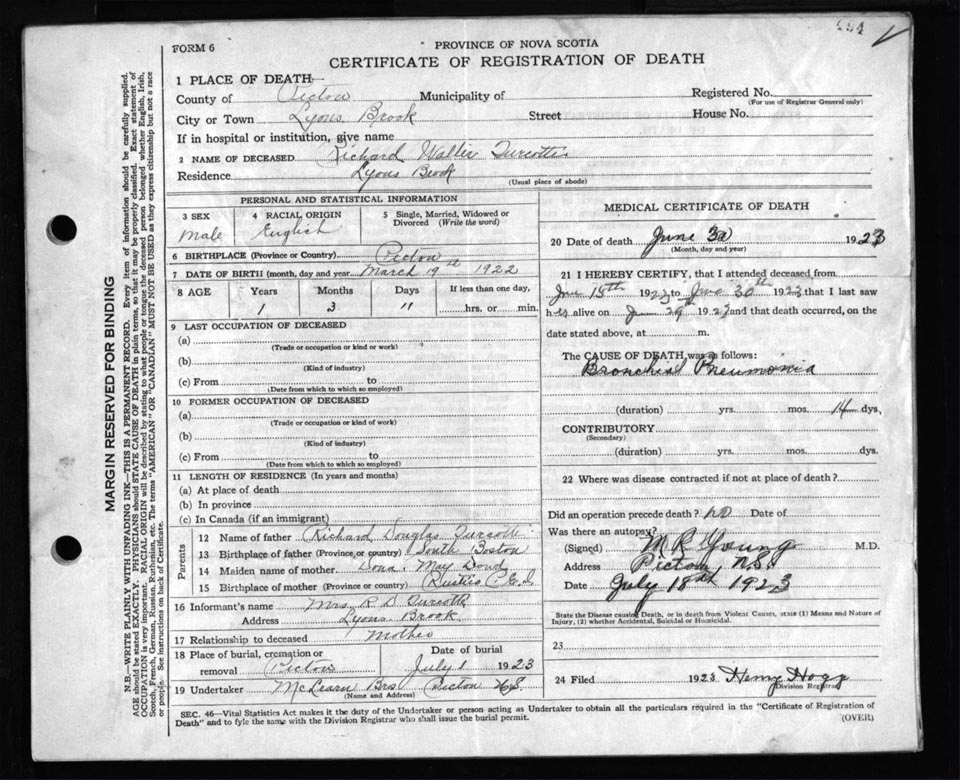 484
FORM 6
PROVINCE OF NOVA SCOTIA
CERTIFICATE OF REGISTRATION OF DEATH
1 PLACE OF DEATH—
County of Pictou Municipality of Registered No.
(For use of Registrar General only)
City or Town Lyons Brook Street House No.
If in hospital or institution, give name
2 NAME OF DECEASED Richard Walter Turcotte
Residence Lyons Brook
(Usual place of abode)
MARGIN RESERVED FOR BINDING
N.B.—WRITE PLAINLY WITH UNFADING INK—THIS IS A PERMANENT RECORD. Every item of information should be carefully supplied.
AGE should be stated EXACTLY. PHYSICIANS should STATE CAUSE OF DEATH in plain terms, so that it may be properly classified. Exact statement of
OCCUPATION is very important. RACIAL ORIGIN will be described by stating to what people or tongue the deceased person belonged whether English, Irish,
Scotch, French, German, Russian, Ruthenian, etc. The terms "AMERICAN" OR "CANADIAN" MUST NOT BE USED as they express citizenship but not a race
or people. See instructions on back of Certificate.
PERSONAL AND STATISTICAL INFORMATION
3 SEX 4 RACIAL ORIGIN 5 Single, Married, Widowed or
Divorced (Write the word)
Male English
6 BIRTHPLACE (Province or Country) Pictou
7 DATE OF BIRTH (month, day and year) March 19th 1922
8 AGE Years Months Days If less than one day,
1 3 11 hrs. or min.
9 LAST OCCUPATION OF DECEASED
(a)
(Trade or occupation or kind or work)
(b)
(Kind of industry)
(c) From to
(Date from which to which so employed)
10 FORMER OCCUPATION OF DECEASED
(a)
(Trade or occupation or kind of work)
(b)
(Kind of industry)
(c) From to
(Date from which to which so employed)
11 LENGTH OF RESIDENCE (In years and months)
(a) At place of death
(b) In province
(c) In Canada (if an immigrant)
Parents
12 Name of father Richard Douglas Turcotte
13 Birthplace of father (Province or country) South Boston
14 Maiden name of mother May Dowd
15 Birthplace of mother (Province or country) Rustico P.E.I.
16 Informant's name Mrs. R D Turcotte
Address Lyons Brook
17 Relationship to deceased Mother
18 Place of burial, cremation or Date of burial
removal Pictou July 1 1923
19 Undertaker McLearn Bros Pictou N.S.
(Name and Address)
MEDICAL CERTIFICATE OF DEATH
20 Date of death June 30 1923
(Month, day and year)
21 I HEREBY CERTIFY, that I attended deceased from
June 15th 1923 to June 30th 1923 that I last saw
h alive on June 29th 1923 and that death occurred, on the
date stated above, at m.
The CAUSE OF DEATH was as follows:
Bronchial Pneumonia
(duration) yrs. mos. 14 dys,
CONTRIBUTORY
(Secondary)
(duration) yrs. mos. dys.
22 Where was disease contracted if not at place of death?
Did an operation precede death? no Date of
Was there an autopsy?
(Signed) M R Young M.D.
Address Pictou, N.S.
Date July 18th 1923
State the Disease causing Death, or in death from Violent Causes, state (1) Means and Nature of
Injury, (2) whether Accidental, Suicidal or Homicidal.
23
24 Filed 1923 Henry Hogg
Division Registrar
SEC. 46—Vital Statistics Act makes it the duty of the Undertaker or person acting as Undertaker to obtain all the particulars required in the "Certificate of Registration of
Death" and to fyle the same with the Division Registrar who shall issue the burial permit.
(OVER)